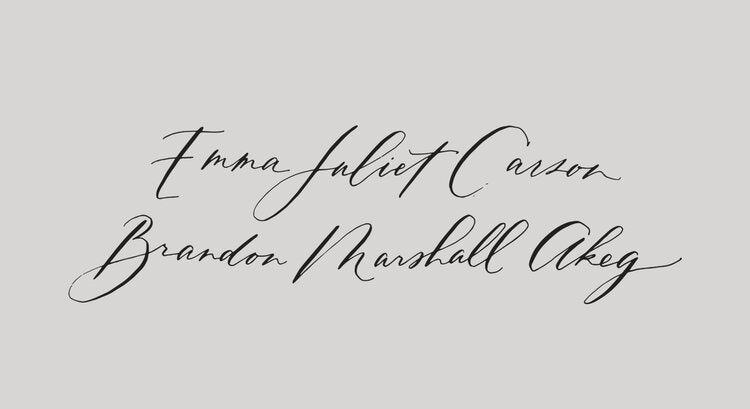 Emma Juliet Carson
Brandon Marshall Akeg